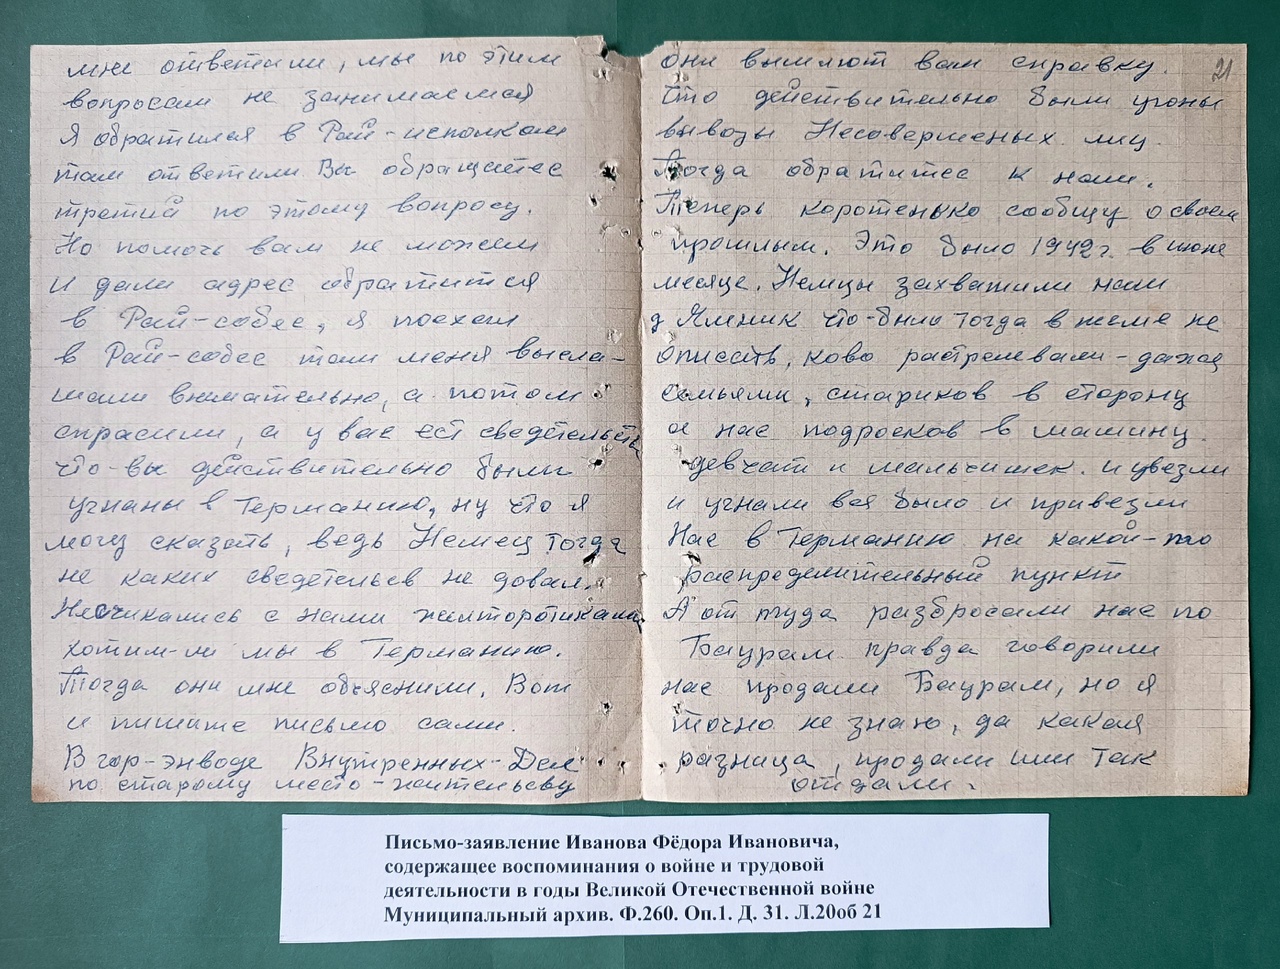 мне ответили, мы по этим
вопросам не занимаемся
Я обратился в Рай-исполком
там ответили Вы обращаетес
третий по этому вопросу.
Но помочь вам не можем
и дали адрес обратится
в Рай-собес, я поехал
в Рай-собес там меня высла-
шали внимательно, а потом
спрасили, а у вас ест сведетельств
что-вы действительно были
угнаны в Германию, ну что я
могу сказать, ведь Немец тогда
не каких сведетельсв не довал.
Несчикались с нами желторотиками
хотим-ли мы в Германию.
Тогда они мне обьяснили, Вот
и пишите письмо сами.
В гор-энводе Внутренных-Дел
по старому место-жительсву
они вышлют вам справку. 21
Что действительно были угоны
вывозы Несовершеных лиц.
Тогда обратитес к нам.
Теперь коротенько сообщу о своем
прошлым. Это было 1942г. в июне
месяце. Немцы захватили наш
д Ямник что-было тогда в жеме не
описать, ково растреливали-даже
семьями, стариков в сторону
а нас подросков в машину
девчат и мальчишек. и увезли
и угнали вся было и привезли
Нас в Германию на какой-то
распределительный пункт
А от туда разбросали нас по
Баурам правда говорили
нас продали Баурам, но я
точно не знаю, да какая
разница, продали или так
отдали.
Письмо-заявление Иванова Фёдора Ивановича,
содержащее воспоминания о войне и трудовой
деятельности в годы Великой Отечественной войне
Муниципальный архив. Ф.260. Оп.1. Д. 31. Л.20об 21